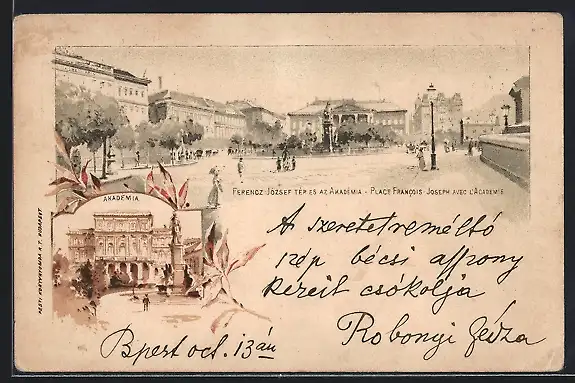 FERENCZ JÓZSEF TÉR ÉS AZ AKADÉMIA - PLACE FRANÇOIS-JOSEPH AVEC L'ACADÉMIE
AKADÉMIA
PESTI KÖNYVNYOMDA R.T. BUDAPEST
A szeretetreméltó
szép bécsi asszony
kezeit csókolja
Robonyi Géza
Bpest oct. 13án